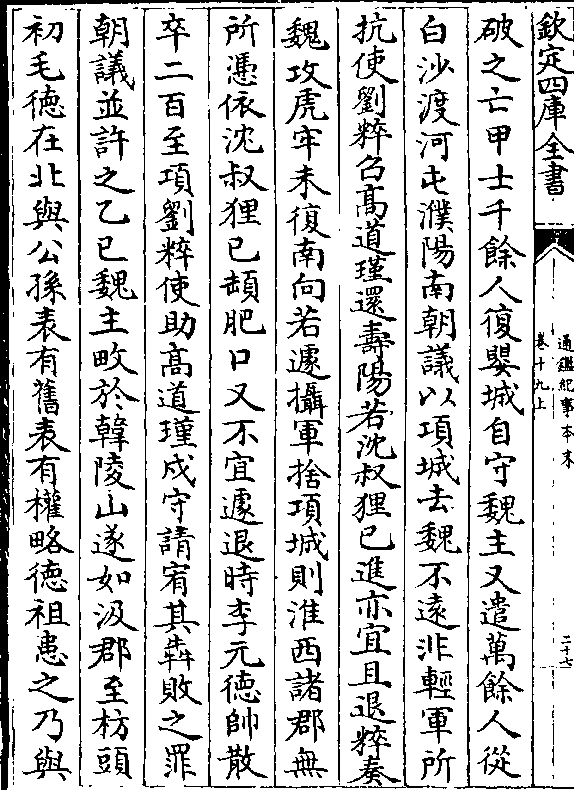 欽定四庫全書
通鑑紀事本末
卷十九上
二十六
破之亡甲士千餘人復嬰城自守魏主又遣萬餘人從
白沙渡河屯濮陽南朝議以項城去魏不遠非輕軍所
抗使劉粹召髙道瑾還壽陽若沈叔狸已進亦宜且退粹奏
魏攻虎牢未復南向若遽攝軍捨項城則淮西諸郡無
所憑依沈叔狸已頓肥口又不宜遽退時李元徳帥散
卒二百至項劉粹使助髙道瑾戍守請宥其犇敗之罪
朝議並許之乙巳魏主畋於韓陵山遂如汲郡至枋頭
初毛徳在北與公孫表有舊表有權略徳祖患之乃與